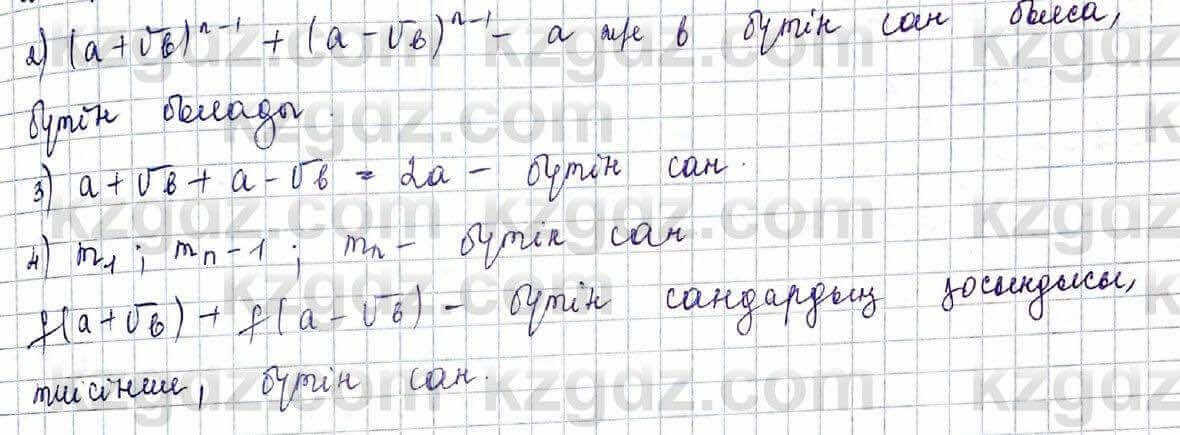 2) (a+√в)ⁿ⁻¹ + (a-√в)ⁿ⁻¹ - a және в бүтін сан болса,
бүтін болады.
3) a+√в + a-√в = 2a - бүтін сан.
4) m₁ ; mₙ-1 ; mₙ - бүтін сан
f(a+√в) + f(a-√в) - бүтін сандардың қосындысы,
тиісінше, бүтін сан.